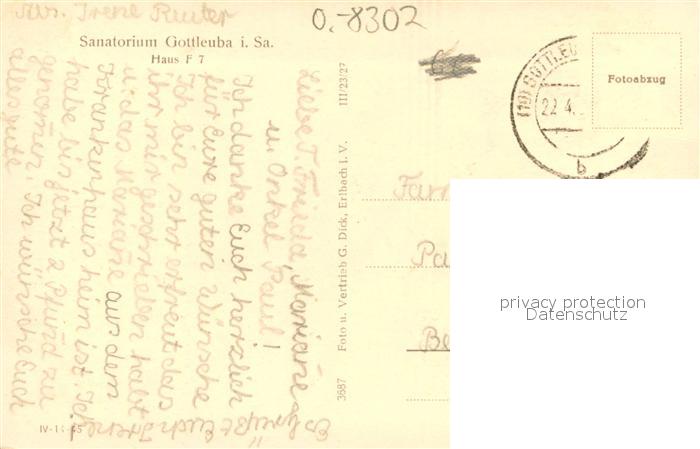 Abs. Irene Reuter
O.-8302
Sanatorium Gottleuba i. Sa.
Haus F 7
Liebe T. Frieda, Mariane
u. Onkel Paul!
Ich danke Euch herzlich
für Eure guten Wünsche
Ich bin sehr erfreut das
ihr mir geschrieben habt
u. das Mariane aus dem
Krankenhaus heim ist. Ich
habe bis jetzt 2 Pfund zu
genomen. Ich wünsche Euch
alles gute
Es grüßt Euch Irene
IV-14-45
III/23/27
Foto u. Vertrieb G. Dick, Erlbach i. V.
3687
(10) GOTTLEU
22.4.
b
Fotoabzug
Fam
Pa
Be
privacy protection
Datenschutz